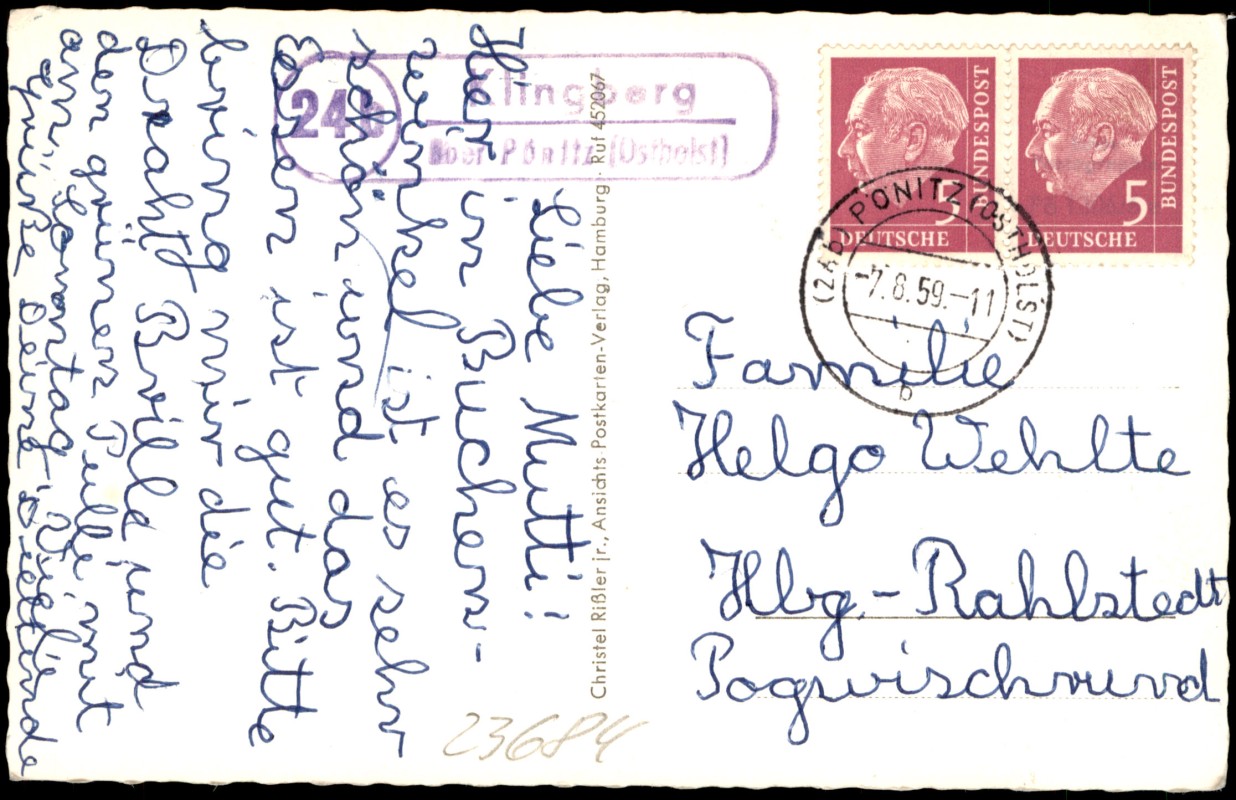 Liebe Mutti!
Hier in Buchen-
winkel ist es sehr
schön und das
Essen ist gut. Bitte
bring mir die
Draht Brille und
den grünen Pulli mit
am Sonntag. Viele
Grüße Deine Dietlinde
24b
Klingberg
über Pönitz (Ostholst)
Christel Rißler jr., Ansichts-Postkarten-Verlag, Hamburg · Ruf 452067
5
BUNDESPOST
DEUTSCHE
5
BUNDESPOST
DEUTSCHE
(24b) PÖNITZ (OSTHOLST)
-7.8.59.-11
b
Familie
Helgo Wehlte
Hbg.-Rahlstedt
Pogwischrund
23684